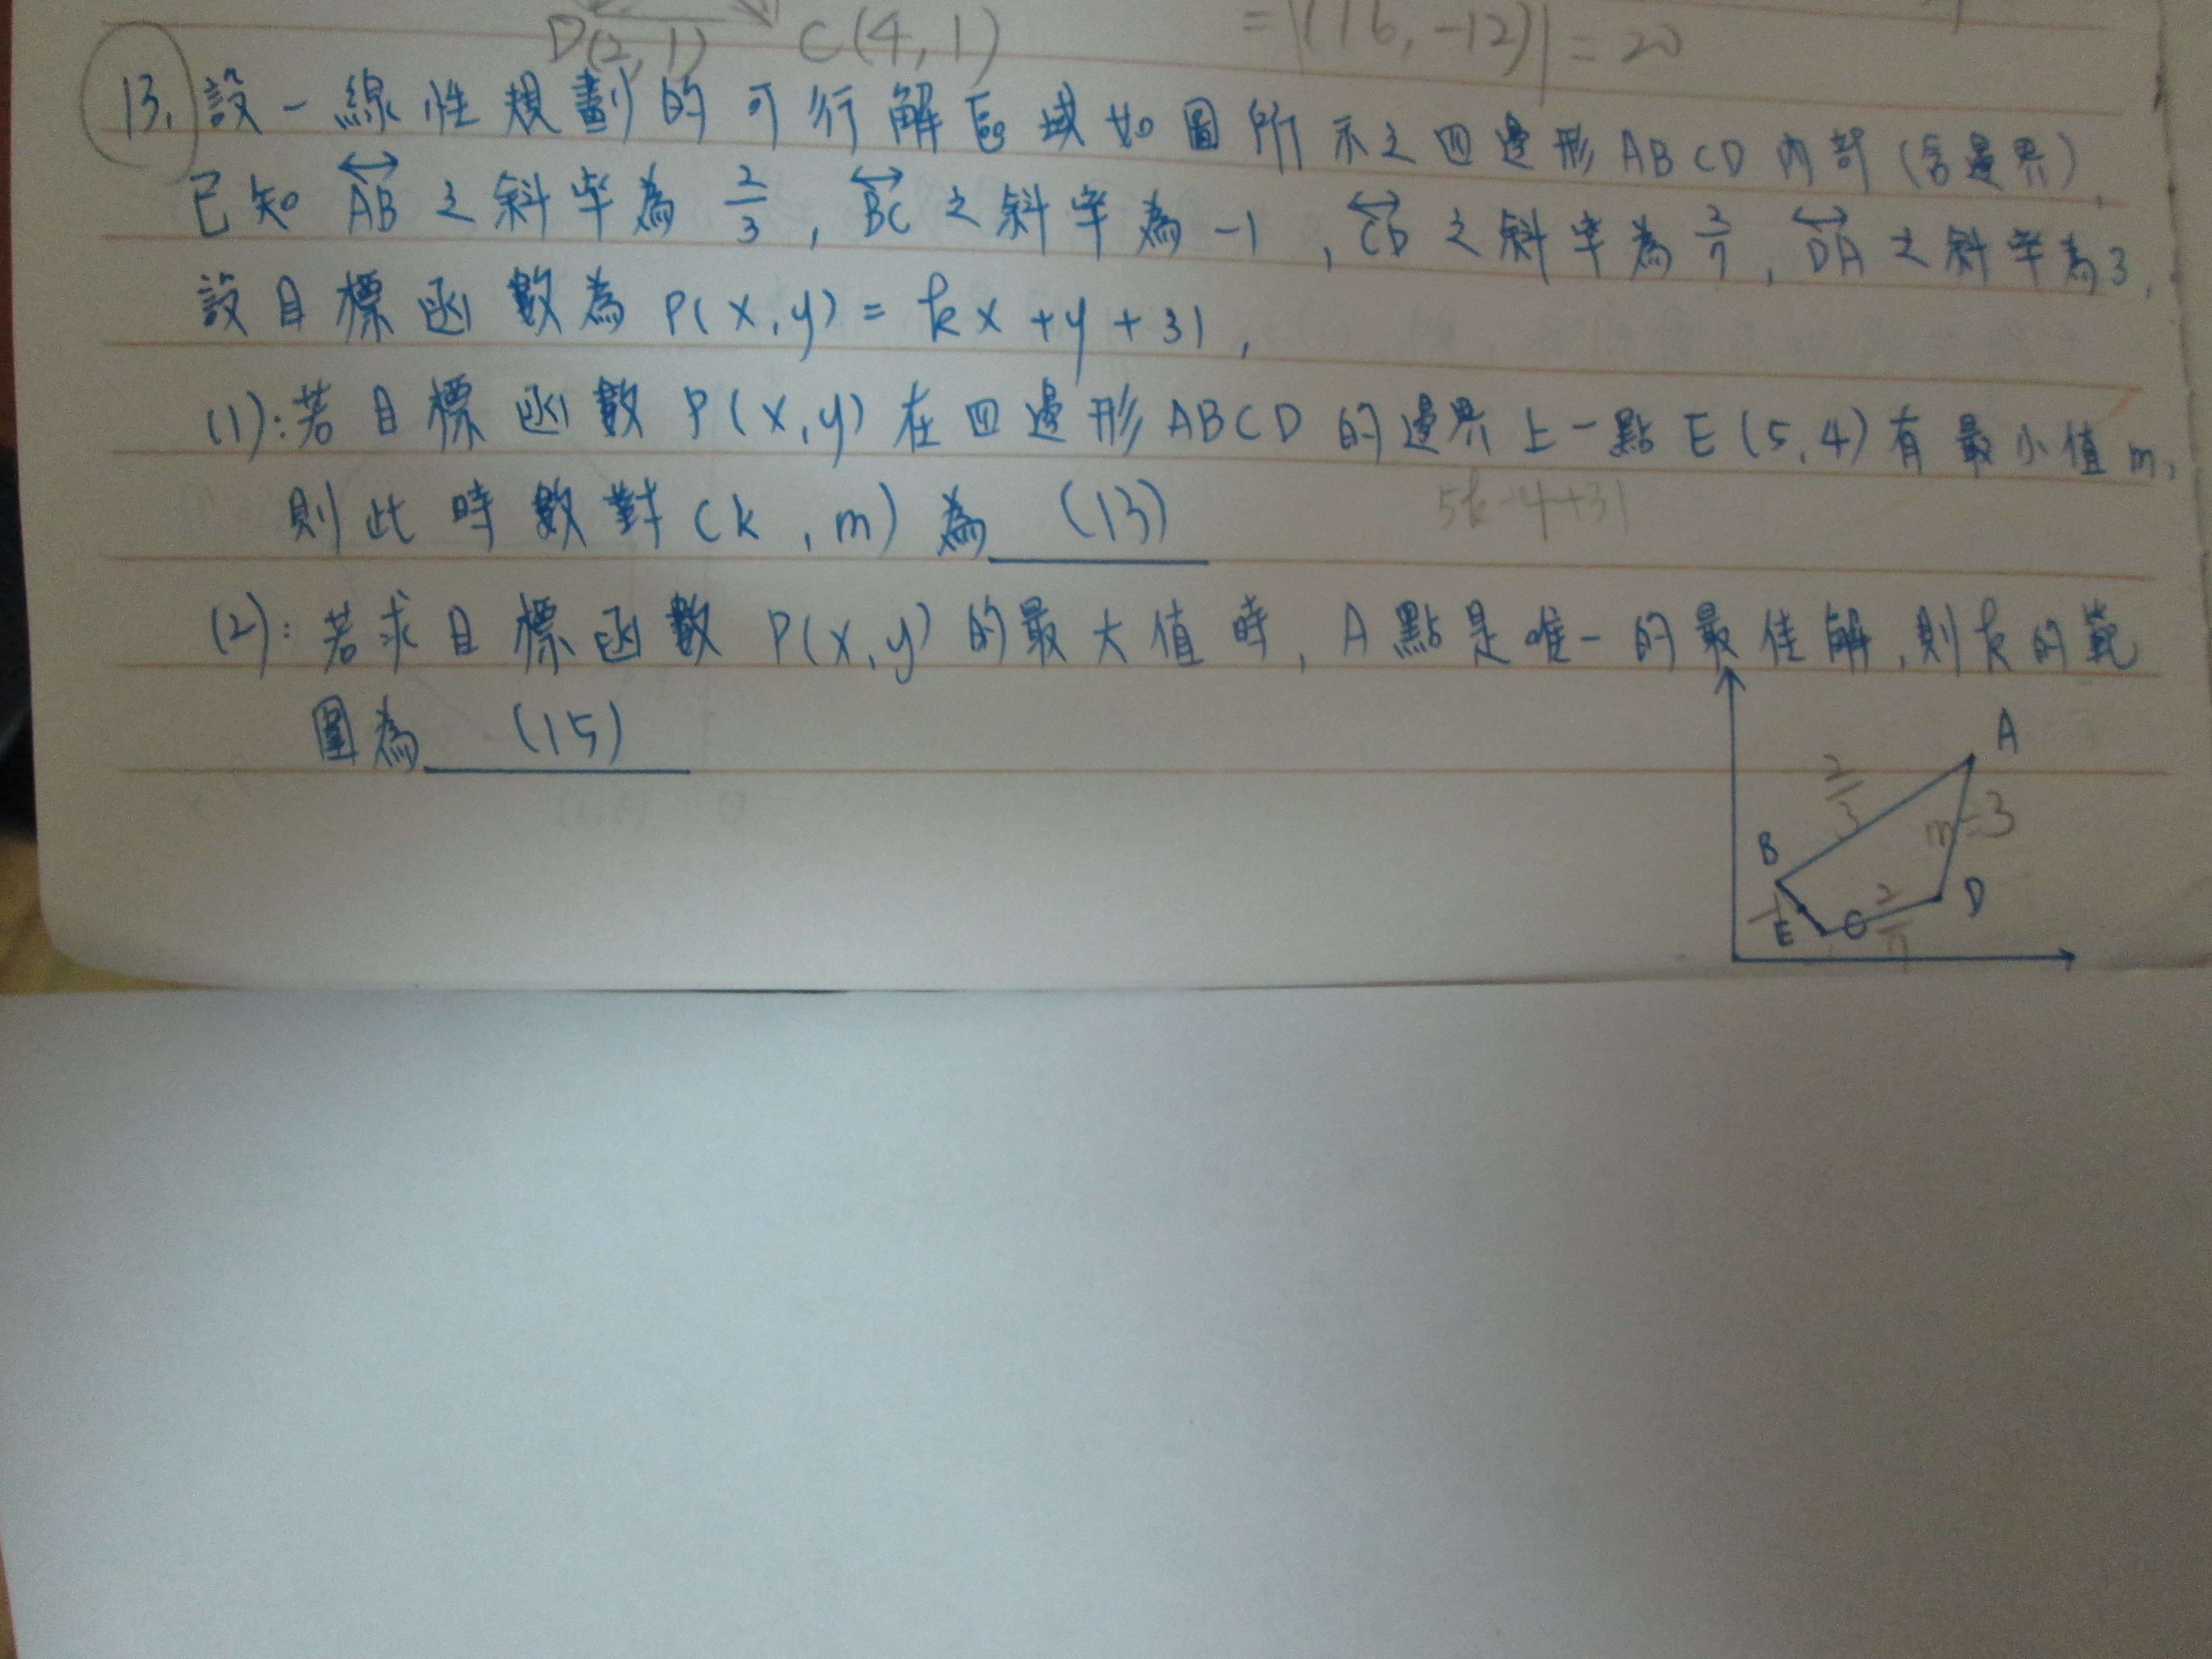 D(2,1) C(4,1) =|(16,-12)|=20
13. 設一線性規劃的可行解區域如圖所示之四邊形ABCD內部(含邊界),
已知 AB 之斜率為 2/3 , BC 之斜率為 -1 , CD 之斜率為 2/7 , DA 之斜率為3,
設目標函數為 P(x,y) = kx + y + 31 ,
(1):若目標函數 P(x,y) 在四邊形ABCD的邊界上一點 E(5,4)有最小值m,
則此時數對(k,m)為 (13) 5k-4+31
(2):若求目標函數 P(x,y)的最大值時, A點是唯一的最佳解,則k的範
圍為 (15)
A
2/3
m=3
B
D
-1
E
C
2/7